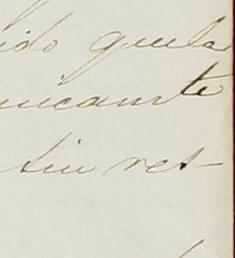 ido quela
nicamte
sin ret-